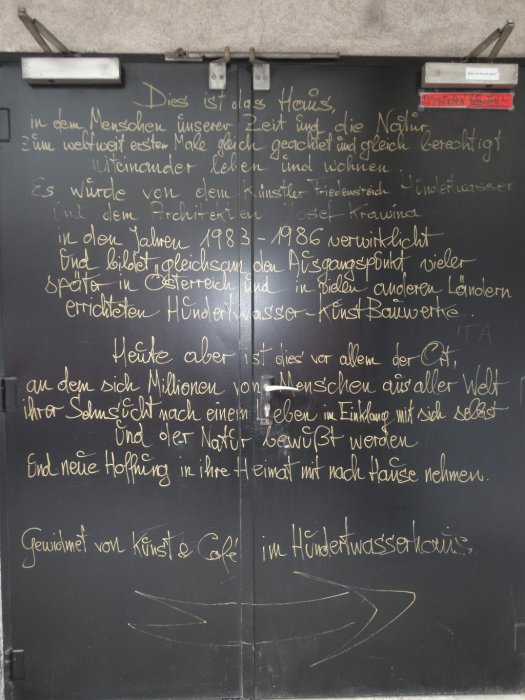 Dies ist das Haus,
in dem Menschen unserer Zeit und die Natur
zum weltweit ersten Male gleich geachtet und gleich berechtigt
miteinander leben und wohnen
Es wurde von dem Künstler Friedensreich Hundertwasser
und dem Architekten Josef Krawina
in den Jahren 1983 - 1986 verwirklicht
Und bildet, gleichsam den Ausgangspunkt vieler
später in Österreich und in vielen anderen Ländern
errichteten Hundertwasser-KunstBauwerke.
ITA
Heute aber ist dies vor allem der Ort,
an dem sich Millionen von Menschen aus aller Welt
ihrer Sehnsucht nach einem Leben im Einklang mit sich selbst
und der Natur bewußt werden
Und neue Hoffnung in ihre Heimat mit nach Hause nehmen.
Gewidmet von Kunst & Café im Hundertwasserhaus.